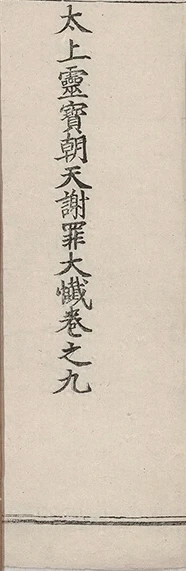 太上靈寶朝天謝罪大懴卷之九